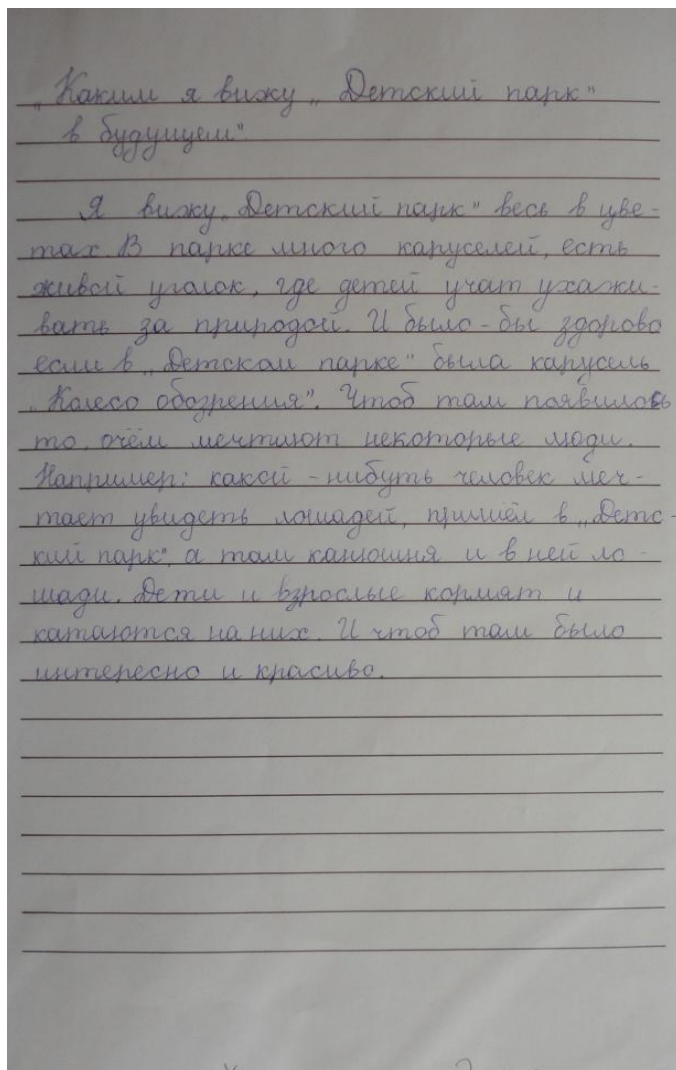 „Каким я вижу „Детский парк"
в будущем"
Я вижу „Детский парк" весь в цве-
тах. В парке много каруселей, есть
живой уголок, где детей учат ухажи-
вать за природой. И было-бы здорово
если в „Детском парке" была карусель
„Колесо обозрения". Чтоб там появилось
то, очём мечтают некоторые люди.
Например: какой-нибуть человек меч-
тает увидеть лошадей, пришёл в „Детс-
кий парк", а там канюшня и в ней ло-
шади. Дети и взрослые кормят и
катаются на них. И чтоб там было
интересно и красиво.